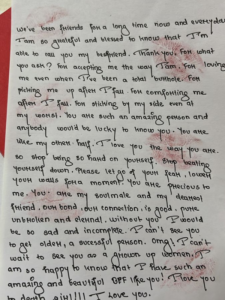 We've been friends for a long time now and everyday
I am so grateful and blessed to know that I'm
able to call you my bestfriend. Thank you. For what
you ask? For accepting me the way I am. For loving
me even when I've been a total butthole. For
picking me up after I fall. For comforting me
after I fall. For sticking by my side even at
my worst. You are such an amazing person and
anybody would be lucky to know you. You are
like my other half. I love you the way you are.
so stop being so hard on yourself. Stop beating
yourself down. Please let go of your fear, lower
your walls for a moment. You are precious to
me. You are my soulmate and my dearest
friend. Our bond, our connection is good, pure
unbroken and eternal. without you I would
be so sad and incomplete. I can't see you
to get older, a successful person. Omg! I can't
wait to see you as a grown up women. I
am so happy to know that I have such an
amazing and beautiful BFF like you! I love you
damn girl!!!! I love you.